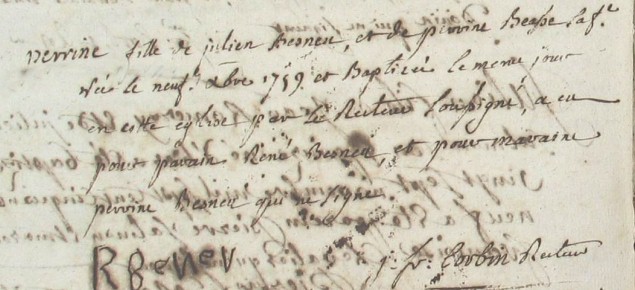 perrine fille de julien Besneu, et de perrine Besse sa f.e
née le neuf. xbre 1759 et Baptisée le meme jour
en cette eglise par le Recteur soussigné, a eu
pour parain René Besneu et pour maraine
perrine Besneu qui ne signe
R Benev j. fr. Corbin Recteur